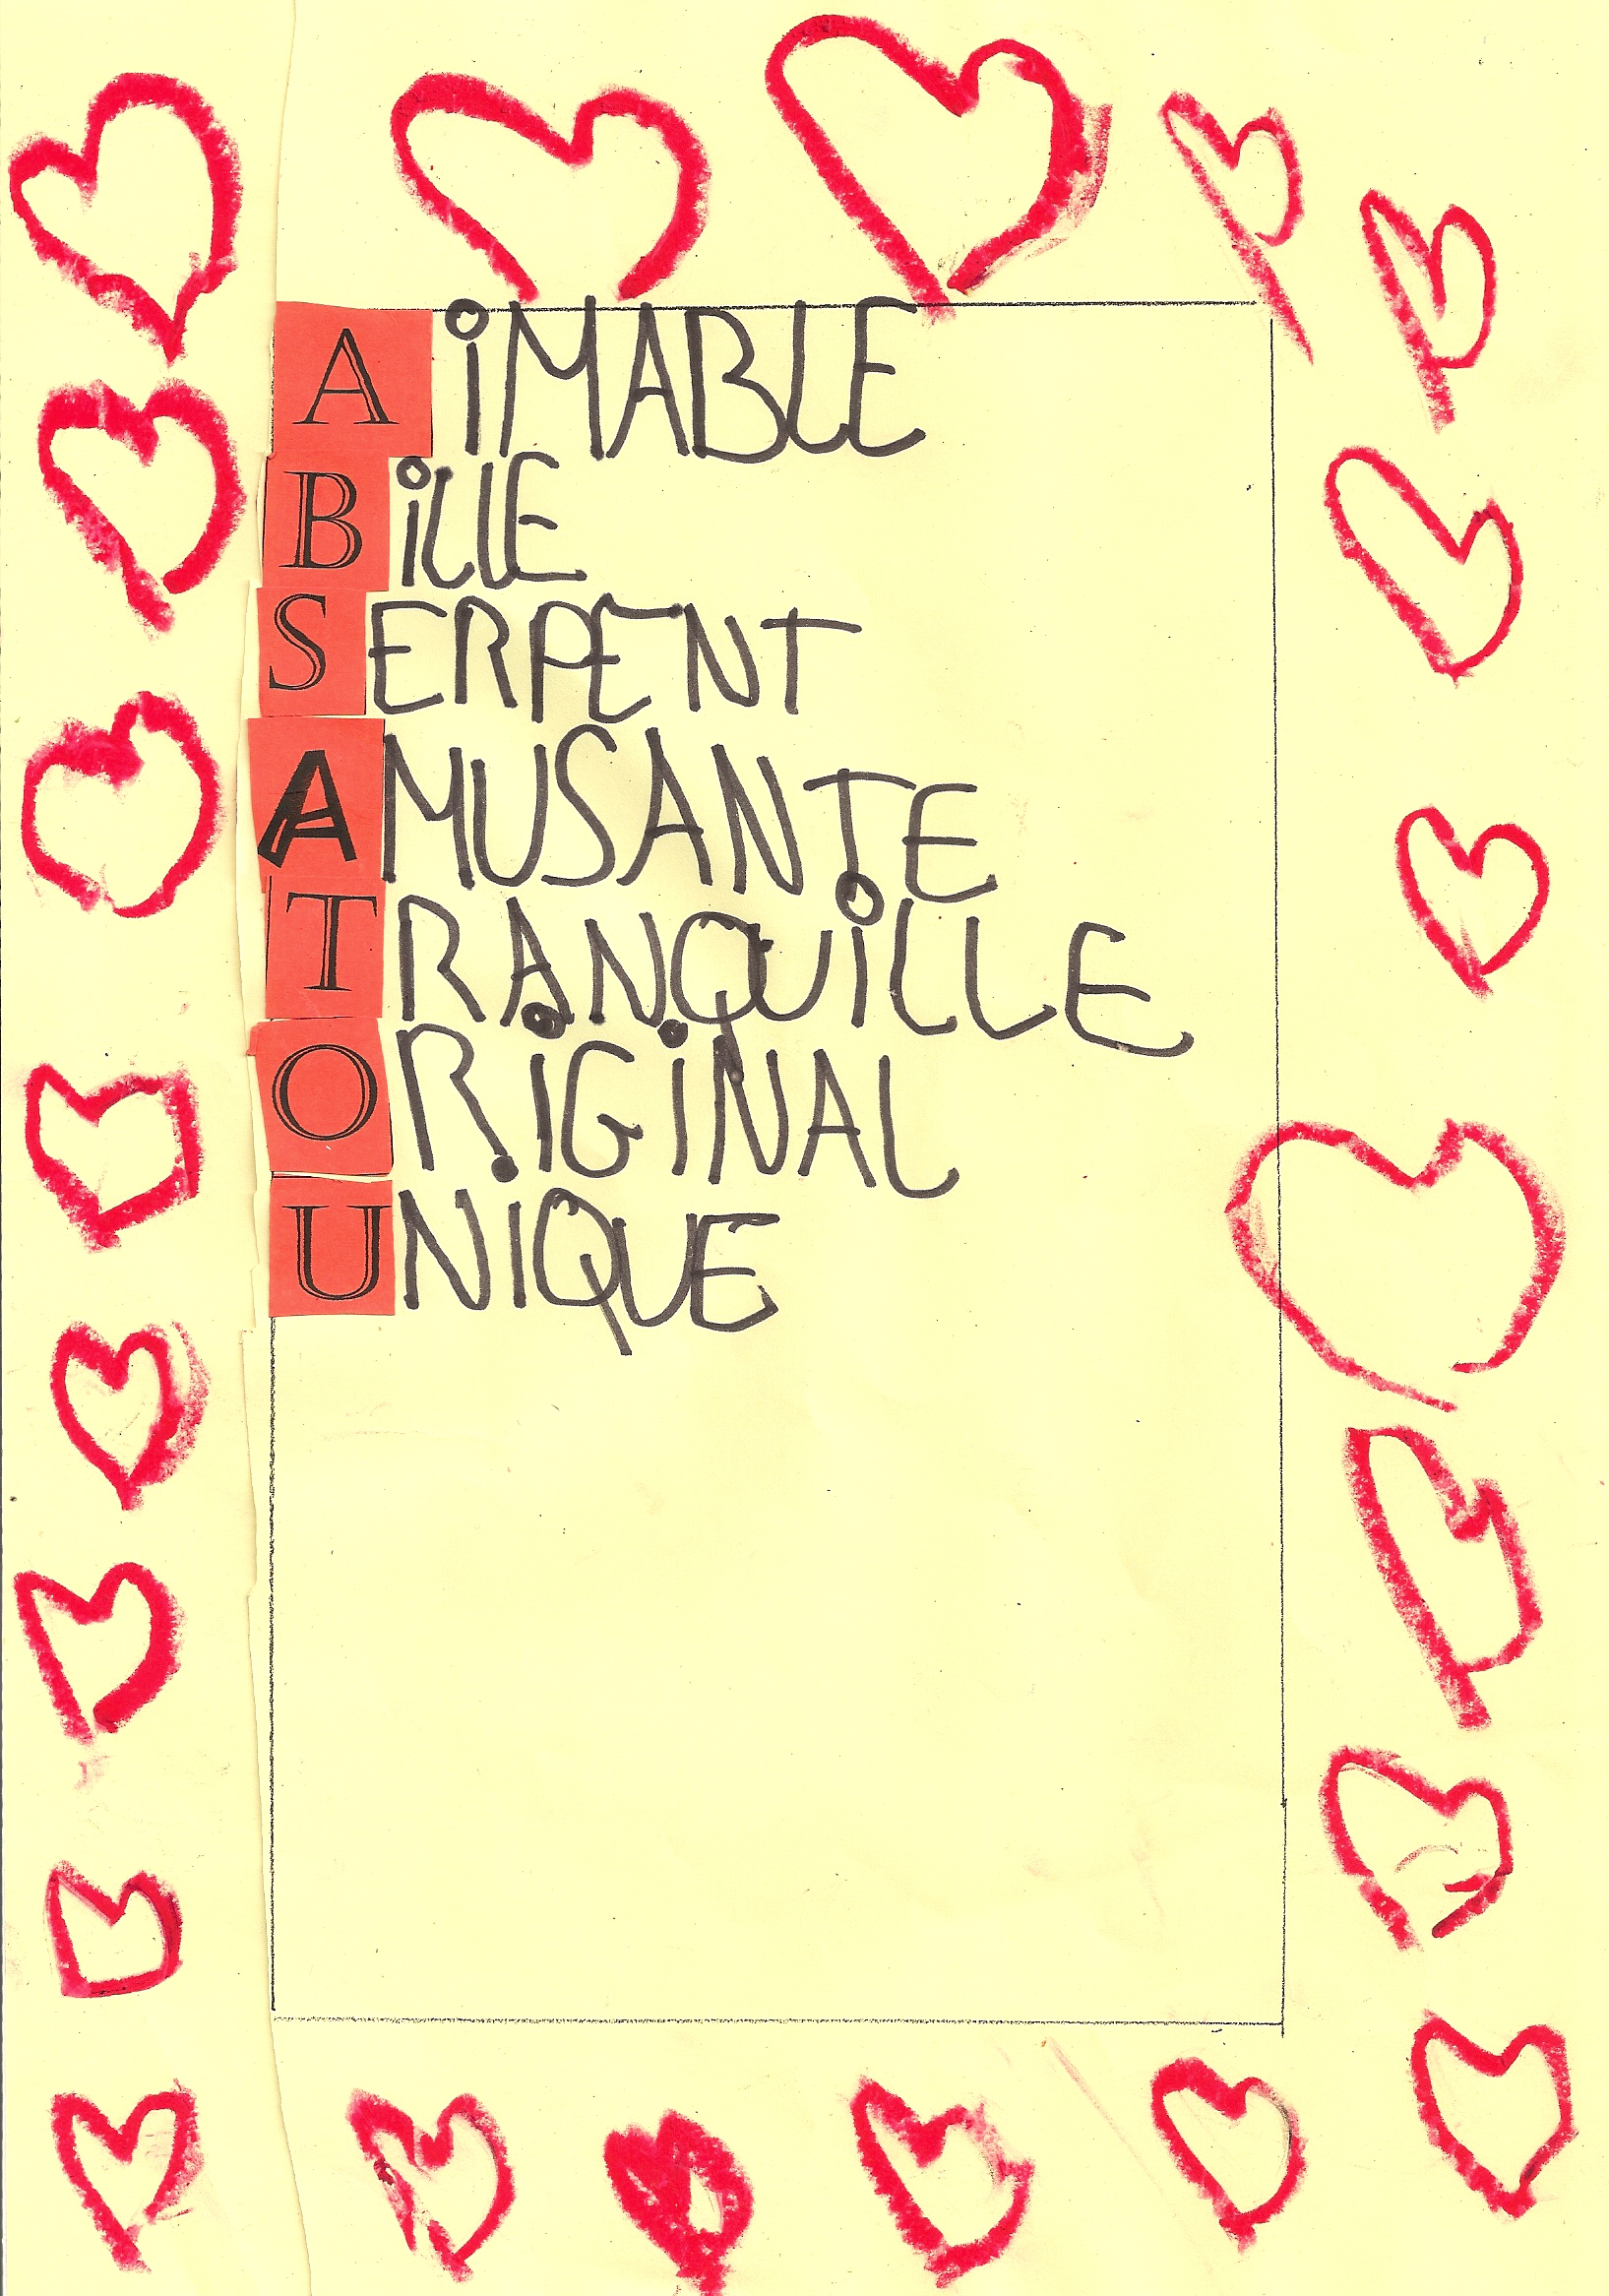 AiMABLE
BiLLE
SERPENT
AMUSANTE
TRANQUiLLE
ORiGiNAL
UNIQUE